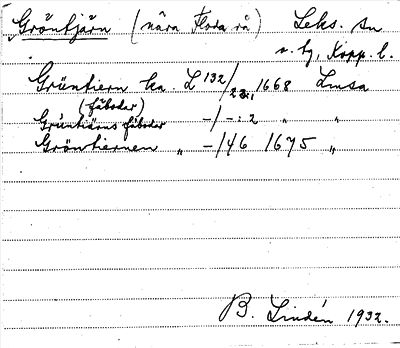 Gröntjärn (nära Floda rå) Leks. sn
v. bg, Kopp. l.
Gröntiern ka. L 132/23:1 1668 LmSa
(fäboder)
Gröntiärns fäboder -/-:2 " "
Gröntiernen " -/46 1675 "
B. Lindén 1932.